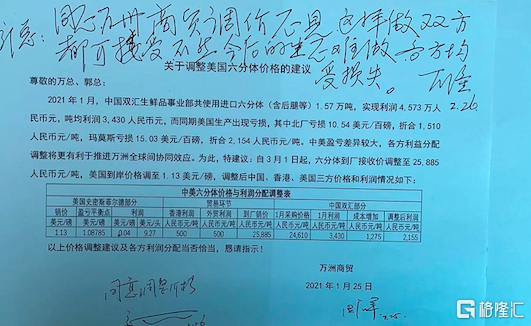 同意万州商贸调价意见 这样做双方
都可接受不然今后的生意难做 各方均
受损失。 万隆
2.26
关于调整美国六分体价格的建议
尊敬的万总、郭总：
2021 年 1 月，中国双汇生鲜品事业部共使用进口六分体（含后腿等）1.57 万吨，实现利润 4,573 万人
民币元，吨均利润 3,430 人民币元，而同期美国生产出现亏损，其中北厂亏损 10.54 美元/百磅，折合 1,510
人民币元/吨，玛莫斯亏损 15.03 美元/百磅，折合 2,154 人民币元/吨。中美盈亏差异较大，各方利益分配
调整将更有利于推进万洲全球间协同效应。为此，特建议：自 3 月 1 日起，六分体到厂接收价调整至 25,885
人民币元/吨，美国到岸价格调至 1.13 美元/磅，调整后中国、香港、美国三方价格和利润情况如下：
中美六分体价格与利润分配调整表
美国史密斯菲尔德部分 贸易环节 中国双汇部分
销价 盈亏平衡点 利润 香港利润 外贸利润 到厂销价 1月采购价格 1月利润 成本增加 调整后利润
美元/磅 美元/磅 美元/磅 美元/头 人民币元/吨 人民币元/吨 人民币元/吨 人民币元/吨 人民币元/吨 人民币元/吨 人民币元/吨
1.13 1.08785 0.04 9.27 500 500 25,885 24,610 3,430 1,275 2,155
以上价格调整建议及各方利润分配当否恰当，恳请指示！
万洲商贸
2021 年 1 月 25 日
同意调整价格
格隆汇